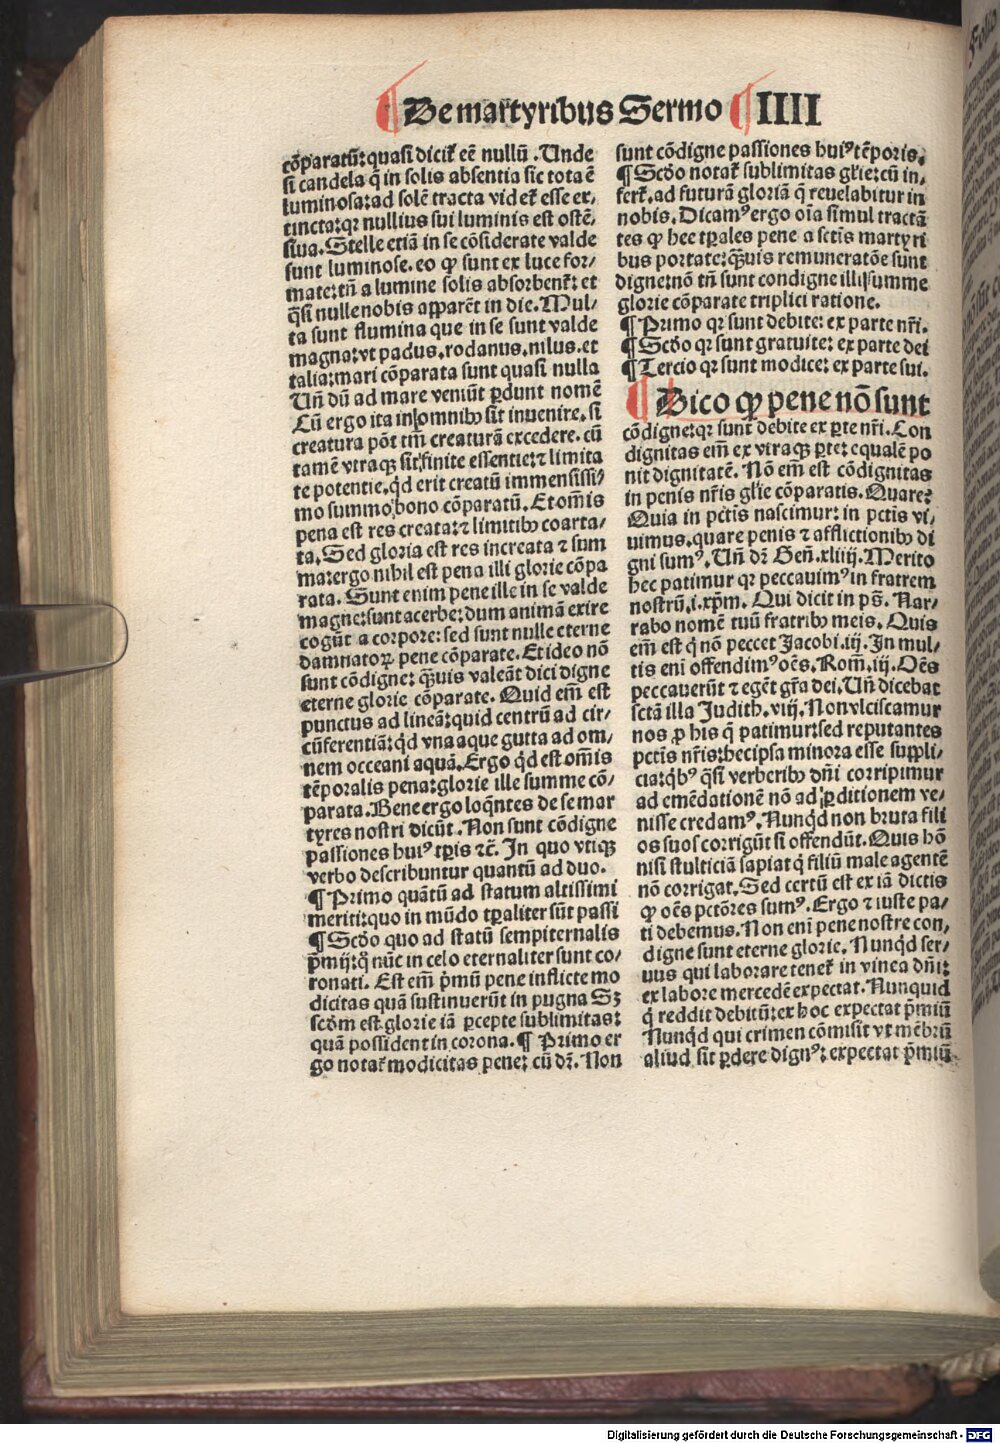 ¶ De martyribus Sermo ¶ IIII
cōparatū: quasi dicit̄ eē nullū. Unde
si candela q̄ in solis absentia sic tota ē
luminosa: ad solē tracta videt̄ esse ex⸗
tincta: qꝛ nullius sui luminis est ostē⸗
siua. Stelle etiā in se cōsiderate valde
sunt luminose. eo ꝙ sunt ex luce for⸗
mate: tn̄ a lumine solis absorbent̄: et
q̄si nulle nobis apparēt in die. Mul⸗
ta sunt flumina que in se sunt valde
magna: vt padus. rodanus. nilus. et
talia: mari cōparata sunt quasi nulla
Un̄ dū ad mare veniūt ꝑdunt nomē
Cū ergo ita in omnibꝰ sit inuenire. si
creatura pōt tm̄ creaturā excedere. cū
tamē vtraqꝫ sit finite essentie: ⁊ limita
te potentie. qd̄ erit creatū immensissi⸗
mo summo bono cōparatū. Et om̄is
pena est res creata: ⁊ limitibꝰ coarta⸗
ta. Sed gloria est res increata ⁊ sum
ma: ergo nihil est pena illi glorie cōpa
rata. Sunt enim pene ille in se valde
magne: sunt acerbe: dum animā exire
cogūt a corpore: sed sunt nulle eterne
damnatoꝝ pene cōparate. Et ideo nō
sunt cōdigne: q̄uis valeāt dici digne
eterne glorie cōparate. Quid em̄ est
punctus ad lineā: quid centrū ad cir⸗
cūferentiā: qd̄ vna aque gutta ad om⸗
nem occeani aquā. Ergo qd̄ est om̄is
tēporalis pena: glorie ille summe cō⸗
parata. Bene ergo loq̄ntes de se mar
tyres nostri dicūt. Non sunt cōdigne
passiones huiꝰ tꝑis ⁊c̄. In quo vtiqꝫ
verbo describuntur quantū ad duo.
¶ Primo quātū ad statum altissimi
meriti: quo in mūdo tꝑaliter sūt passi
¶ Scd̄o quo ad statū sempiternalis
p̄mij: q̄ nūc in celo eternaliter sunt co⸗
ronati. Est em̄ p̄mū pene inflicte mo
dicitas quā sustinuerūt in pugna Sꝫ
scd̄m est glorie iā ꝑcepte sublimitas:
quā possident in corona. ¶ Primo er
go notat̄ modicitas pene: cū dr̄. Non
sunt cōdigne passiones huiꝰ tēporis.
¶ Scd̄o notat̄ sublimitas gl̄ie: cū in⸗
fert̄. ad futurā gloriā q̄ reuelabitur in
nobis. Dicamꝰ ergo oīa simul tractā
tes ꝙ hec tꝑales pene a sctīs martyri
bus portate: q̄uis remuneratōe sunt
digne: nō tn̄ sunt condigne illi summe
glorie cōparate triplici ratione.
¶ Primo qꝛ sunt debite: ex parte nr̄i.
¶ Scd̄o qꝛ sunt gratuite: ex parte dei
¶ Tercio qꝛ sunt modice: ex parte sui.
¶ Dico ꝙ pene nō sunt
cōdigne: qꝛ sunt debite ex ꝑte nr̄i. Con
dignitas em̄ ex vtraqꝫ ꝑte: equalē po
nit dignitatē. Nō em̄ est cōdignitas
in penis nr̄is gl̄ie cōparatis. Quare:
Quia in pctīs nascimur: in pctīs vi⸗
uimus. quare penis ⁊ afflictionibꝰ di
gni sumꝰ. Un̄ dr̄ Gen̄. xliiij. Merito
hec patimur qꝛ peccauimꝰ in fratrem
nostrū. i. xp̄m. Qui dicit in pš. Nar⸗
rabo nomē tuū fratribꝰ meis. Quis
em̄ est q̄ nō peccet Jacobi. iij. In mul⸗
tis eni offendimꝰ oēs. Rom̄. iij. Oēs
peccauerūt ⁊ egēt gr̄a dei. Un̄ dicebat
sctā illa Judith. viij. Non vlciscamur
nos ꝓ his q̄ patimur: sed reputantes
pctīs nr̄is: hec ipsa minora esse suppli⸗
cia: qd̄bꝰ q̄si verberibꝰ dn̄i corripimur
ad emēdationē nō ad ꝑditionem ve⸗
nisse credamꝰ. Nunqd̄ non bruta fili
os suos corrigūt si offendūt. Quis hō
nisi stulticiā sapiat q̄ filiū male agentē
nō corrigat. Sed certū est ex iā dictis
ꝙ oēs pctōres sumꝰ. Ergo ⁊ iuste pa⸗
ti debemus. Non eni pene nostre con⸗
digne sunt eterne glorie. Nunqd̄ ser⸗
uus qui laborare tenet̄ in vinea dn̄i:
ex labore mercedē expectat. Nunquid
q̄ reddit debitū: ex hoc expectat p̄miū
Nunqd̄ qui crimen cōmisit vt mēbrū
aliud sit ꝑdere dignꝰ: expectat p̄miū
Digitalisierung gefördert durch die Deutsche Forschungsgemeinschaft - DFG